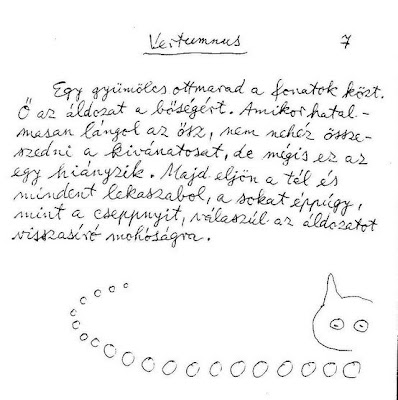 Vertumnus 7
Egy gyümölcs ottmarad a fonatok közt.
Ő az áldozat a bőségért. Amikor hatal-
masan lángol az ősz, nem nehéz össze-
szedni a kivánatosat, de mégis ez az
egy hiányzik. Majd eljön a tél és
mindent lekaszabol, a sokat éppúgy,
mint a cseppnyit, válaszúl az áldozatot
visszasíró mohóságra.